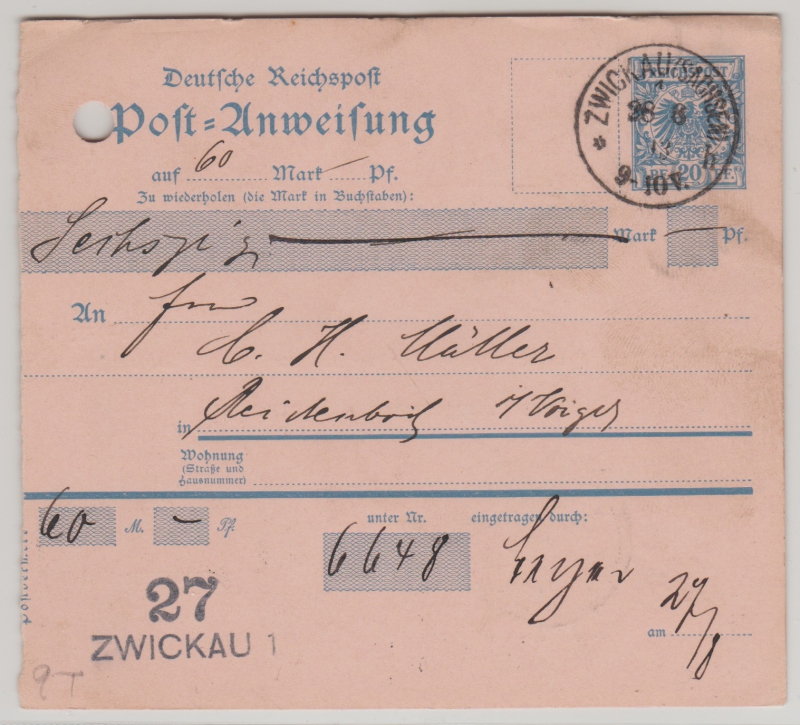 Deutsche Reichspost
Post=Anweisung
auf 60 Mark — Pf.
Zu wiederholen (die Mark in Buchstaben):
Sechszig Mark — Pf.
An
C. H. Müller
in Reichenbach i/Voigtl
Wohnung
(Straße und
Hausnummer)
60 M. — Pf.
unter Nr. eingetragen durch:
6648
27/8
am
27
ZWICKAU 1
REICHSPOST
20 PF.
ZWICKAU (SACHSEN)
1
28 8
9-10V.